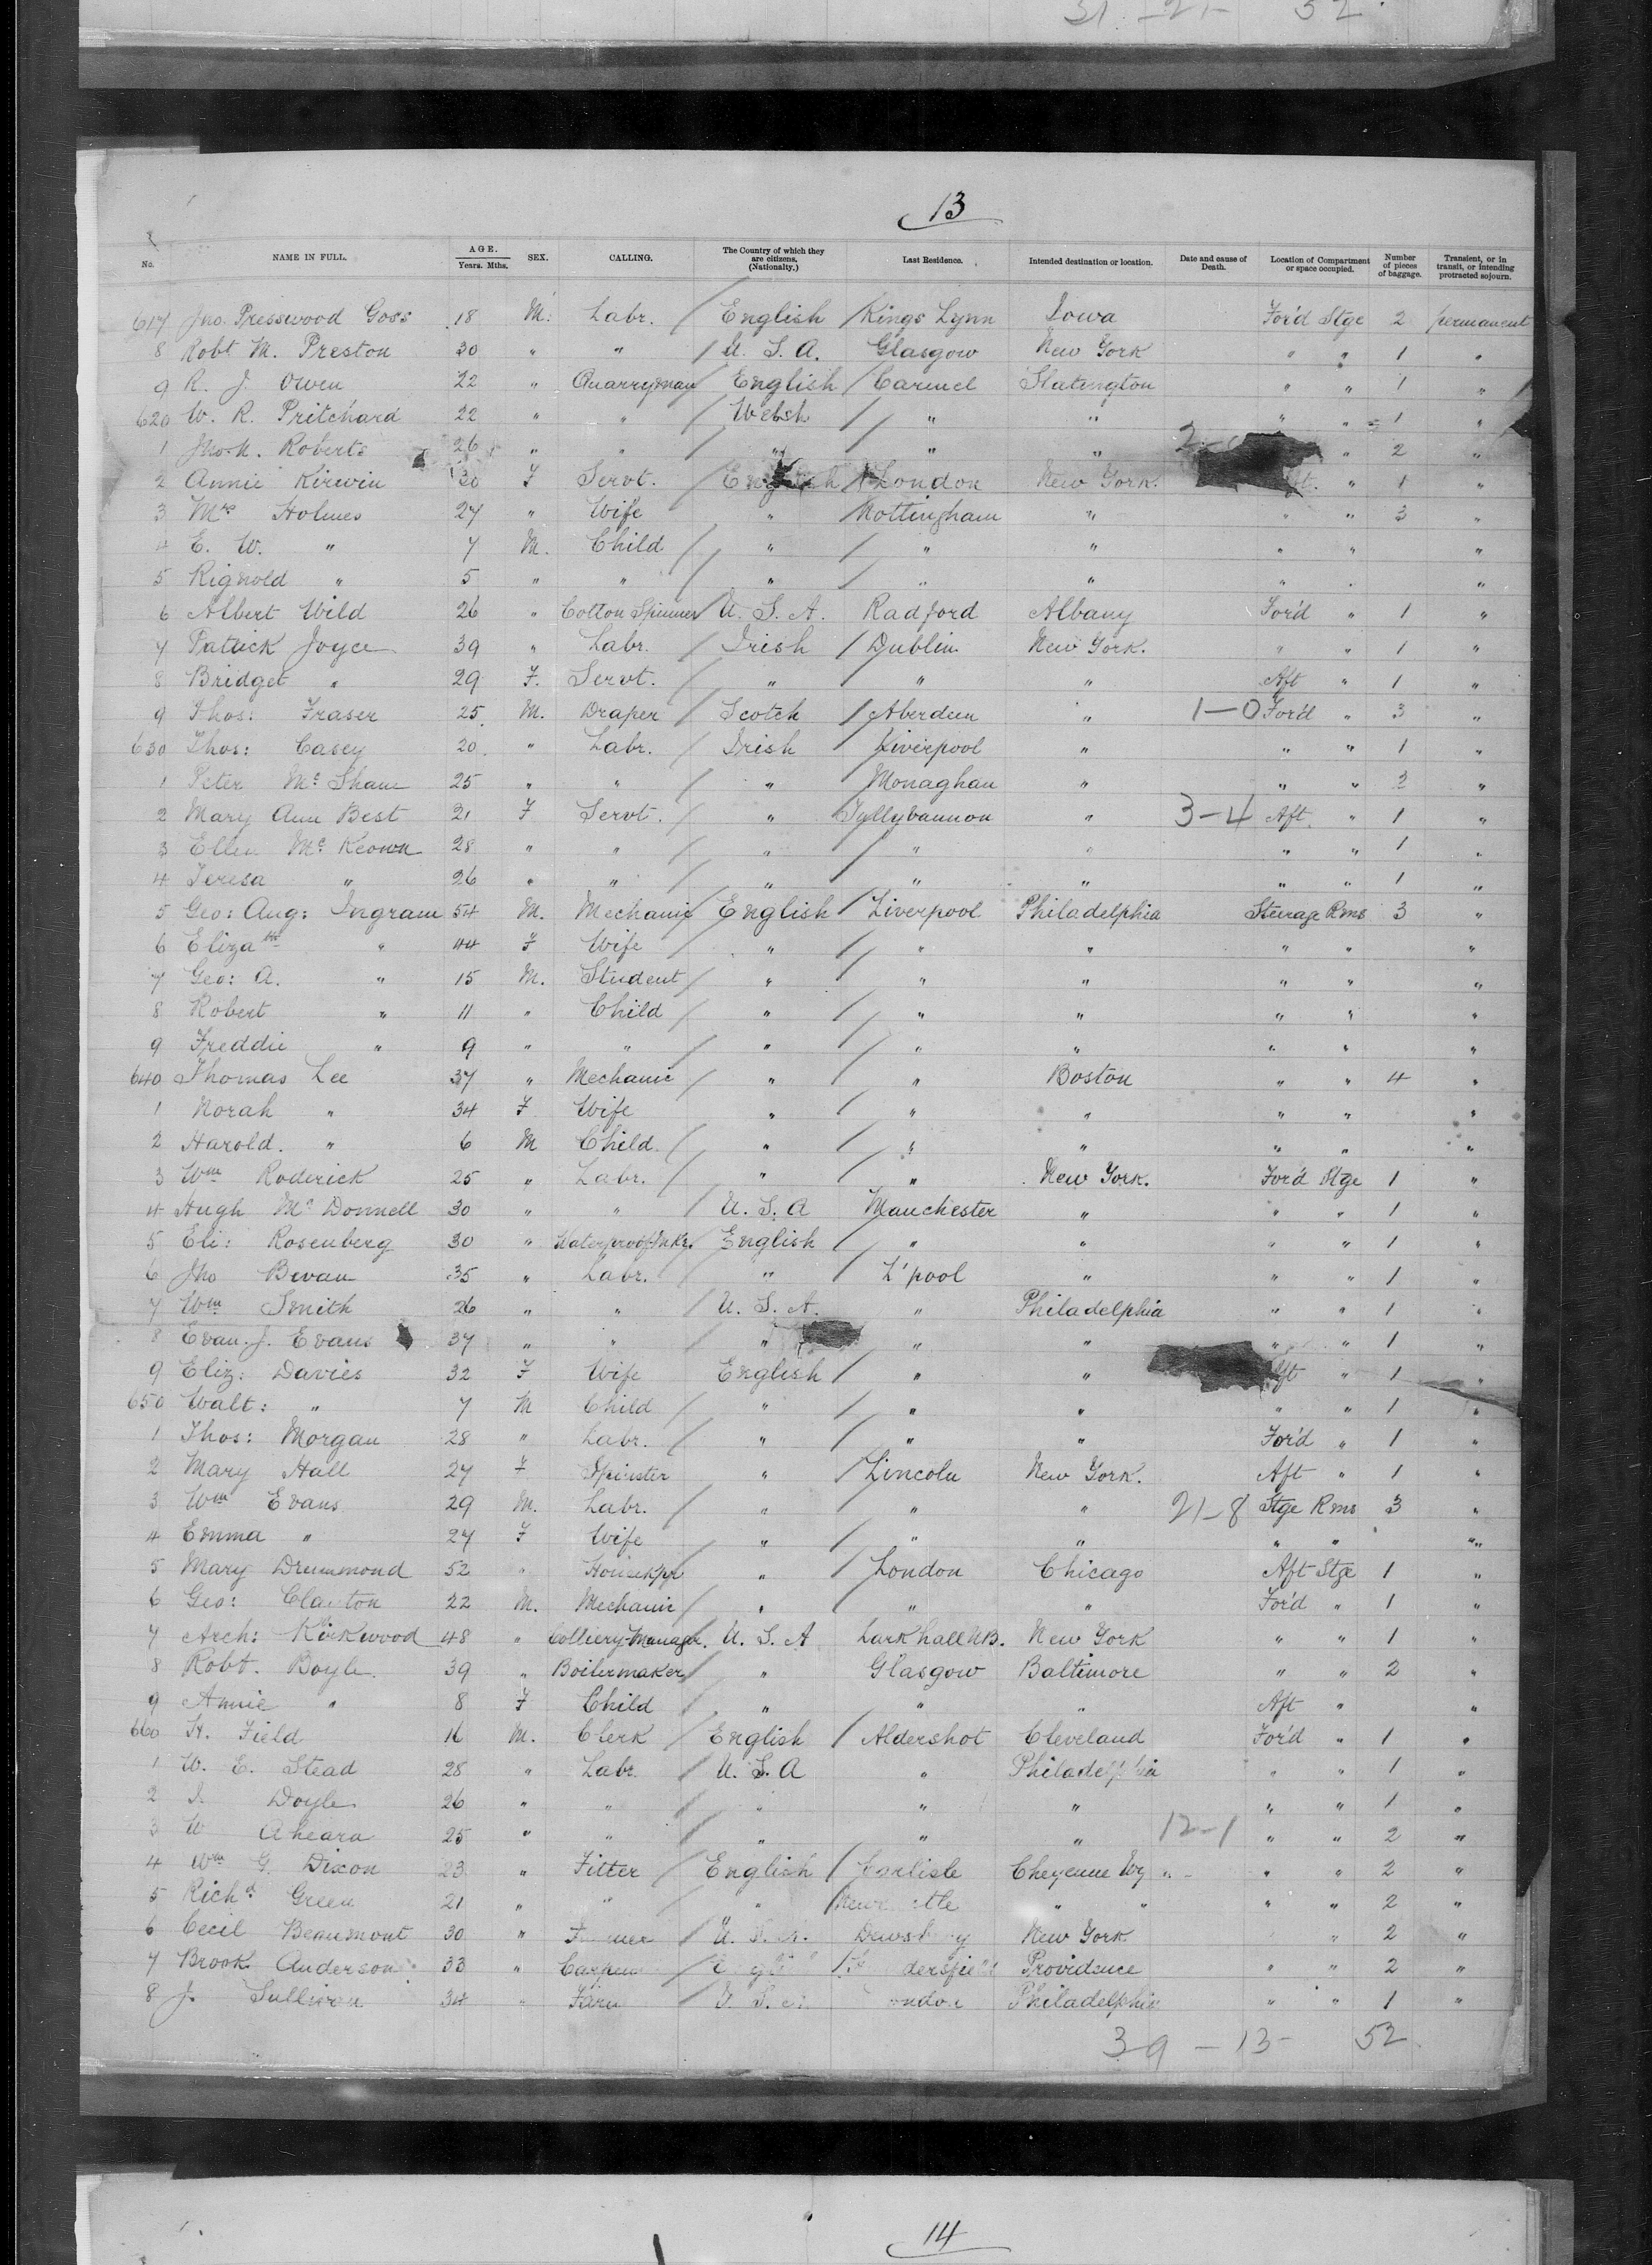 31 - 21 - 52
13
No. NAME IN FULL. AGE. Years. Mths. SEX. CALLING. The Country of which they are citizens. (Nationality.) Last Residence. Intended destination or location. Date and cause of Death. Location of Compartment or space occupied. Number of pieces of baggage. Transient, or in transit, or intending protracted sojourn.
617 Jno. Presswood Goss 18 M. Labr. English Kings Lynn Iowa For'd Stge 2 permanent
8 Robt M. Preston 30 " " U. S. A. Glasgow New York " " 1 "
9 R. J. Owen 22 " Quarryman English Carmel Slatington " " 1 "
620 W. R. Pritchard 22 " " Welsh " " " " 1 "
1 Jno. H. Roberts 26 " " " " " 2 " 2 "
2 Annie Kirwin 30 F Servt. English London New York. " 1 "
3 Mrs Holmes 27 " Wife " Nottingham " " " 3 "
4 E. W. " 7 M. Child " " " " " "
5 Rignold " 5 " " " " " " " "
6 Albert Wild 26 " Cotton Spinner U. S. A. Radford Albany For'd " 1 "
7 Patrick Joyce 39 " Labr. Irish Dublin New York. " " 1 "
8 Bridget " 29 F. Servt. " " " Aft " 1 "
9 Thos: Fraser 25 M. Draper Scotch Aberdeen " 1-0 For'd " 3 "
630 Thos: Casey 20 " Labr. Irish Liverpool " " " 1 "
1 Peter Mc Shane 25 " " " Monaghan " " " 2 "
2 Mary Ann Best 21 F Servt. " Tullybannon " 3-4 Aft. " 1 "
3 Ellen Mc Keown 28 " " " " " " " 1 "
4 Teresa " 26 " " " " " " " 1 "
5 Geo: Aug: Ingram 54 M. Mechanic English Liverpool Philadelphia Steerage Rms 3 "
6 Elizath " 44 F Wife " " " " " "
7 Geo: A. " 15 M. Student " " " " " "
8 Robert " 11 " Child " " " " " "
9 Freddie " 9 " " " " " " " "
640 Thomas Lee 37 " Mechanic " " Boston " " 4 "
1 Norah " 34 F Wife " " " " " "
2 Harold. " 6 M Child. " " " " " "
3 Wm Roderick 25 " Labr. " " New York. For'd Stge 1 "
4 Hugh Mc Donnell 30 " " U. S. A Manchester " " " 1 "
5 Eli: Rosenberg 30 " Waterproof Mkr. English " " " " 1 "
6 Jno Bevan 35 " Labr. " L'pool " " " 1 "
7 Wm Smith 26 " " U. S. A. " Philadelphia " " 1 "
8 Evan. J. Evans 37 " " " " " " " 1 "
9 Eliz: Davies 32 F Wife English " " Aft " 1 "
650 Walt: " 7 M Child " " " " " 1 "
1 Thos: Morgan 28 " Labr. " " " For'd " 1 "
2 Mary Hall 27 F Spinster " Lincoln New York. Aft " 1 "
3 Wm Evans 29 M. Labr. " " " 21-8 Stge Rms 3 "
4 Emma " 27 F Wife " " " " " "
5 Mary Drummond 52 " Housekpr " London Chicago Aft Stge 1 "
6 Geo: Clayton 22 M. Mechanic " " " For'd " 1 "
7 Arch: Kirkwood 48 " Colliery Manager. U. S. A Larkhall N.B. New York " " 1 "
8 Robt. Boyle. 39 " Boilermaker " Glasgow Baltimore " " 2 "
9 Annie " 8 F Child " " " Aft " "
660 H. Field 16 M. Clerk English Aldershot Cleveland For'd " 1 "
1 W. E. Stead 28 " Labr. U. S. A " Philadelphia " " 1 "
2 Doyle 26 " " " " " " " 1 "
3 W Aheara 25 " " " " " 12-1 " " 2 "
4 Wm G. Dixon 23 " Fitter English Carlisle Cheyenne Wy " " 2 "
5 Richd Green 21 " " " " " " " 2 "
6 Cecil Beaumont 30 " U. S. A. New York " 2 "
7 Brook Anderson 33 " Providence " " 2 "
8 J. Sullivan 34 " London Philadelphia " " 1 "
39 - 13 - 52
14